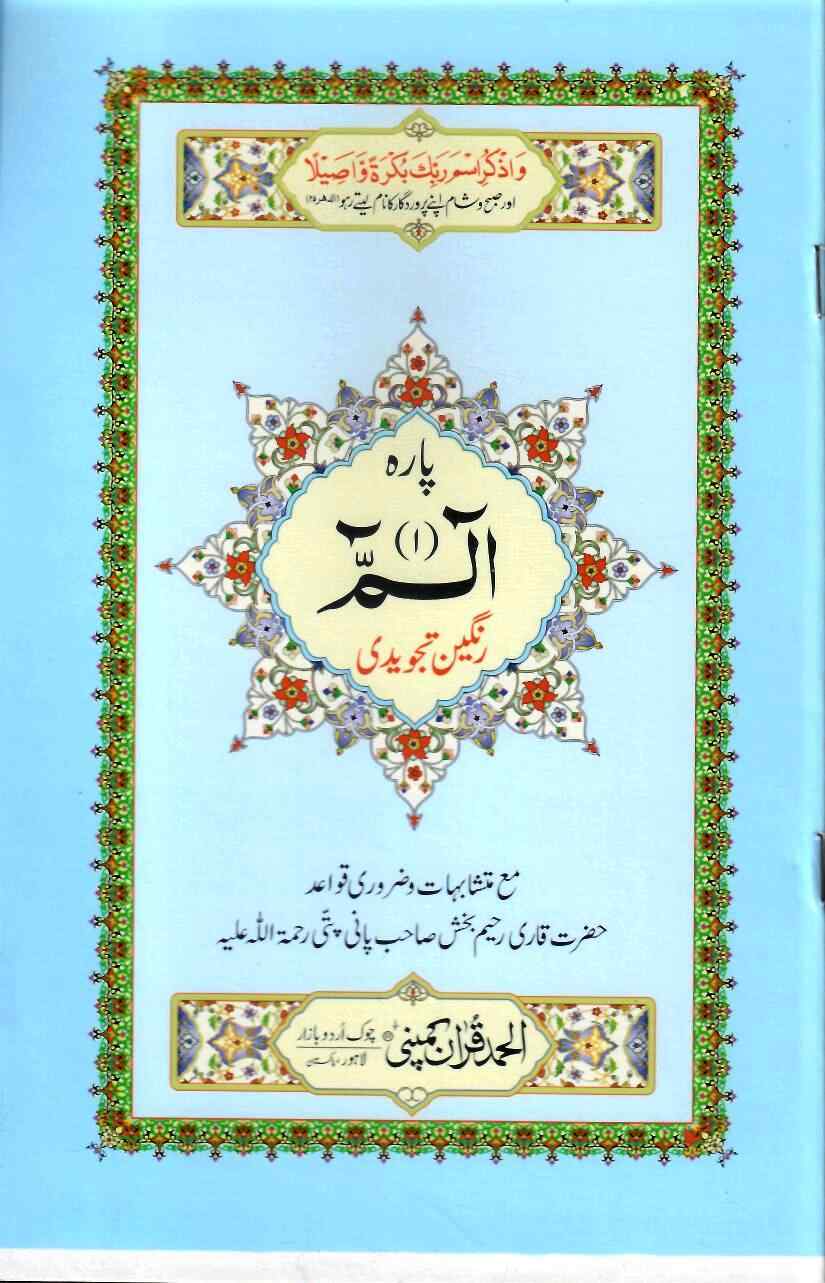 وَاذْكُرِ اسْمَ رَبِّكَ بُكْرَةً وَّاَصِيْلًا
اور صبح و شام اپنے پروردگار کا نام لیتے رہو (الدھر ۲۵)
پارہ
(۱)
الٓمّٓ
رنگین تجویدی
مع متشابہات و ضروری قواعد
حضرت قاری رحیم بخش صاحب پانی پتّی رحمۃ اللہ علیہ
الحمد قُرآن کمپنی
چوک اُردو بازار
لاہور، پاکستان